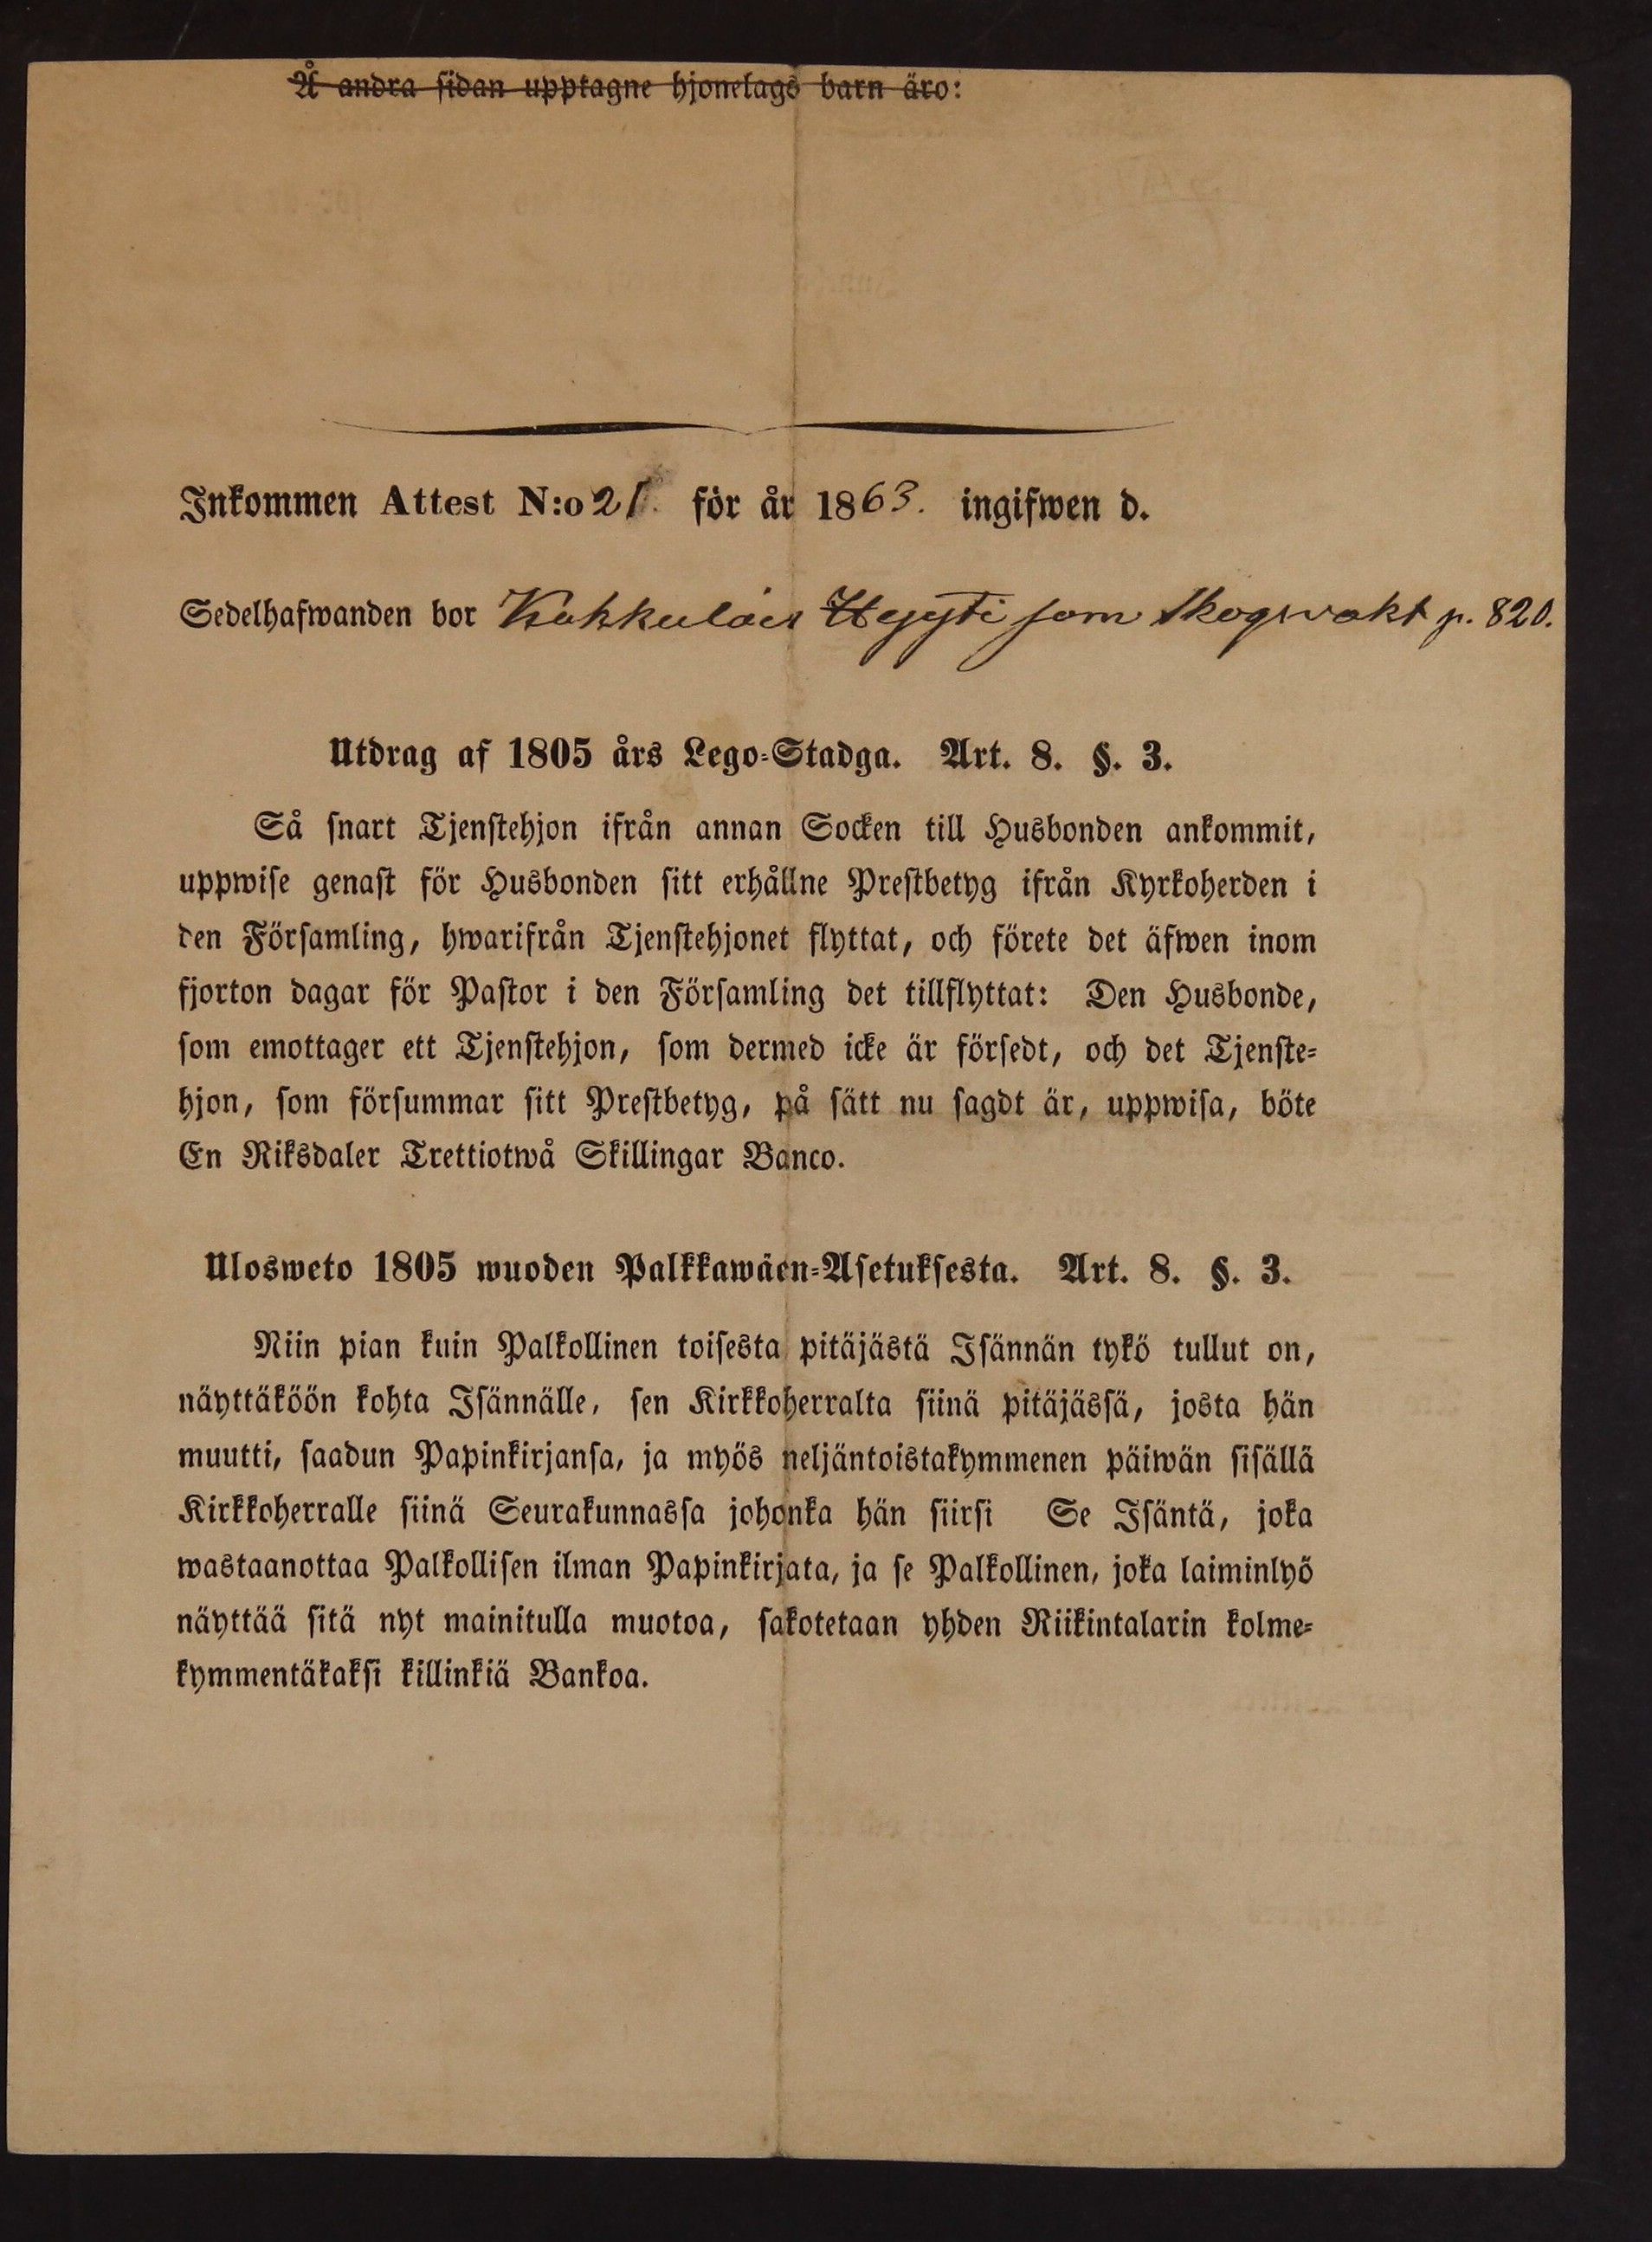 Å andra sidan upptagne hjonelags barn äro:
Inkommen Attest N:o 21. för år 1863. ingifwen d.
Sedelhafwanden bor som Skogvakt p. 820.
Utdrag af 1805 års Lego-Stadga. Art. 8. §. 3.
Så snart Tjenstehjon ifrån annan Socken till Husbonden ankommit,
uppwise genast för Husbonden sitt erhållne Prestbetyg ifrån Kyrkoherden i
den Församling, hwarifrån Tjenstehjonet flyttat, och förete det äfwen inom
fjorton dagar för Pastor i den Församling det tillflyttat: Den Husbonde,
som emottager ett Tjenstehjon, som dermed icke är försedt, och det Tjenste-
hjon, som försummar sitt Prestbetyg, på sätt nu sagdt är, uppwisa, böte
En Riksdaler Trettiotwå Skillingar Banco.
Ulosweto 1805 wuoden Palkkawäen-Asetuksesta. Art. 8. §. 3.
Niin pian kuin Palkollinen toisesta pitäjästä Isännän tykö tullut on,
näyttäköön kohta Isännälle, sen Kirkkoherralta siinä pitäjässä, josta hän
muutti, saadun Papinkirjansa, ja myös neljäntoistakymmenen päiwän sisällä
Kirkkoherralle siinä Seurakunnassa johonka hän siirsi Se Isäntä, joka
wastaanottaa Palkollisen ilman Papinkirjata, ja se Palkollinen, joka laiminlyö
näyttää sitä nyt mainitulla muotoa, sakotetaan yhden Riikintalarin kolme-
kymmentäkaksi killinkiä Bankoa.